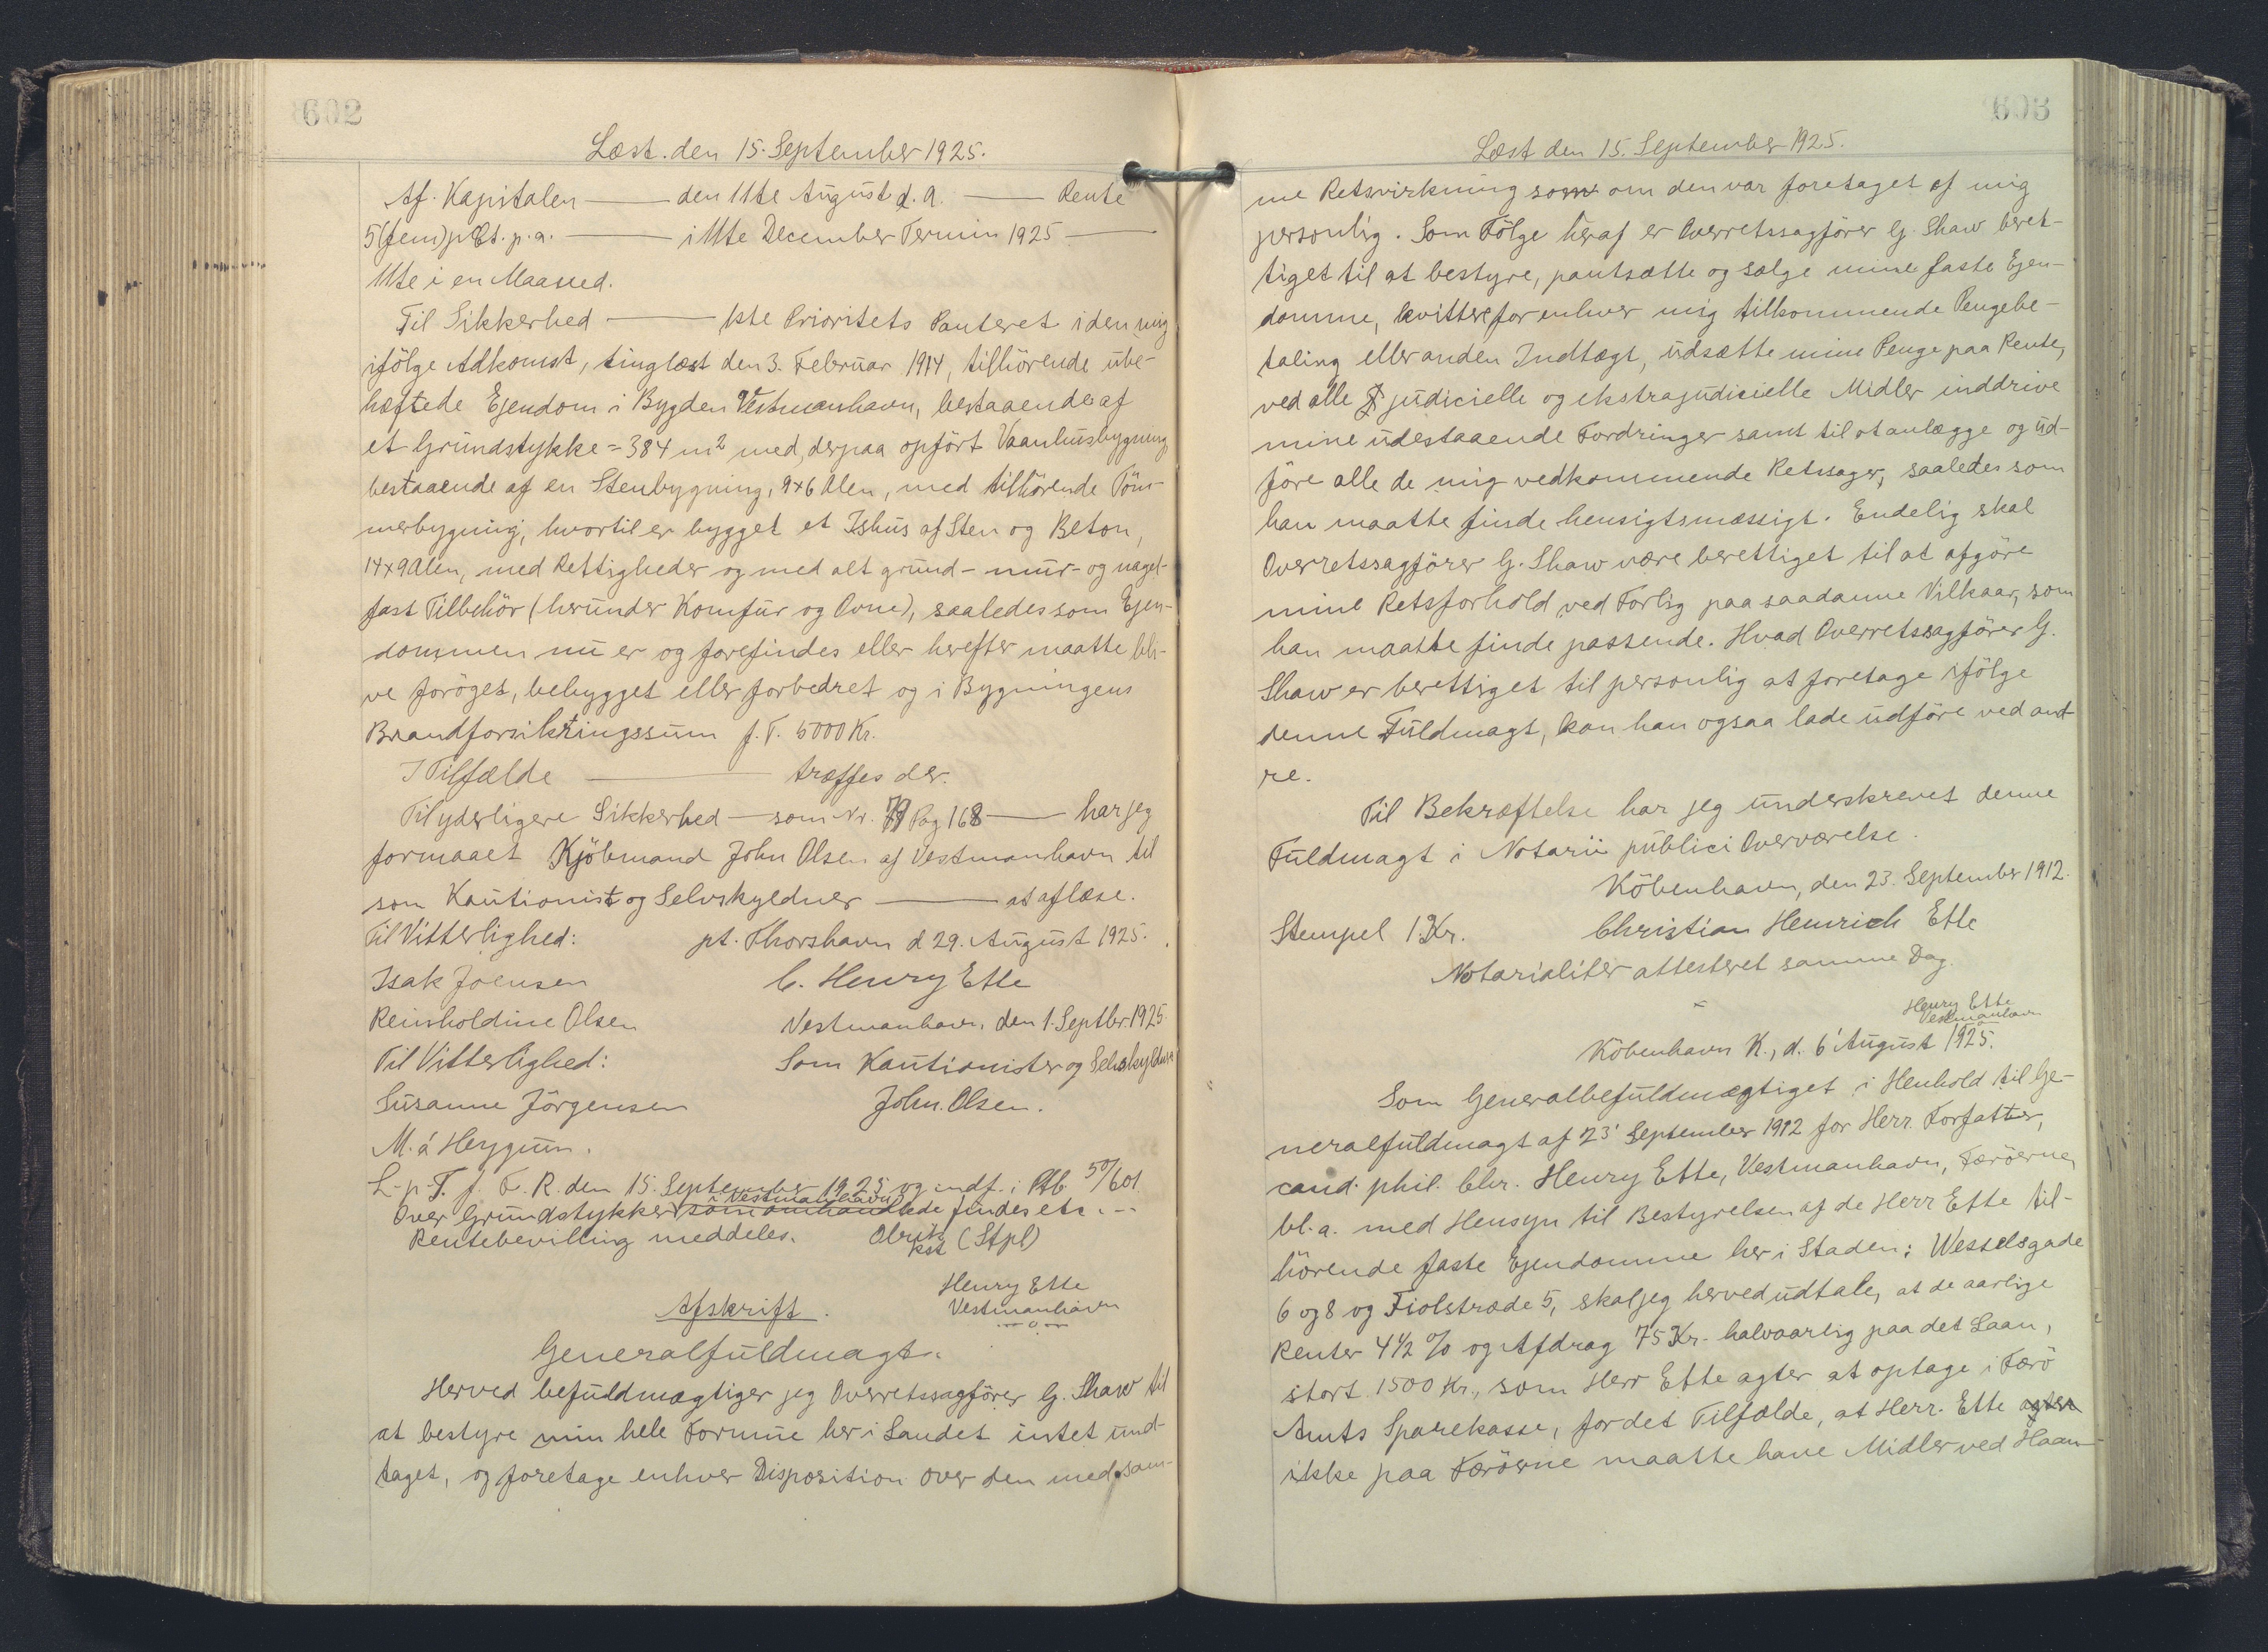 602
Læst. den 15. September 1925.
Af. Kapitalen — den 11te August d. A. — Rente
5(fem) pCt. p. a. — i 11te December Termin 1925 —
11te i en Maaned.
Til Sikkerhed — 1ste Prioritets Panteret i den mig
ifölge Adkomst, tinglæst den 3. Februar 1914, tilhörende ube-
hæftede Ejendom i Bygden Vestmanhavn, bestaaende af
et Grundstykke = 384 m² med, derpaa opfört Vaanhusbygning,
bestaaende af en Stenbygning, 9x6 Alen, med tilhörende Töm-
merbygning, hvortil er bygget et Ishus af Sten og Beton,
14x9 Alen, med Rettigheder og med alt grund- mur- og nagel-
fast Tilbehör (herunder Komfur og Ovne), saaledes som Ejen-
dommen nu er og forefindes eller herefter maatte bli-
ve foröget, bebygget eller forbedret og i Bygningens
Brandforsikringssum f. T. 5000 Kr.
I Tilfælde — træffes der.
Til yderligere Sikkerhed — som Nr. Pag 168 — har jeg
formaaet Kjöbmand John Olsen af Vestmanhavn til
som Kautionist og Selvskyldner — at aflæse.
Til Vitterlighed: pt. Thorshavn d 29. August 1925.
Isak Joensen C. Henry Ette
Reinholdine Olsen Vestmanhavn, den 1. Septbr. 1925.
Til Vitterlighed: Som Kautionister og Selvskyldner
Susanne Jörgensen John. Olsen.
M. á Heygum.
L. p. T. f. F. R. den 15. September 1925 og indf. i Ptb. 5⁰/601
i Vestmanhavn
Over Grundstykker som omhandlede findes etc. --
Rentebevilling meddeles. Olrik
kst (Stpl)
Henry Ette
Afskrift. Vestmanhavn
Generalfuldmagt.
Herved befuldmægtiger jeg Overretssagförer G. Shaw til
at bestyre min hele Formue her i Landet intet und-
taget, og foretage enhver Disposition over den med sam-
603
Læst den 15. September 1925.
me Retsvirkning som om den var foretaget af mig
personlig. Som Fölge heraf er Overretssagförer G. Shaw beret-
tiget til at bestyre, pantsætte og sælge mine faste Ejen-
domme, kvittere for enhver mig tilkommende Pengebe-
taling eller anden Indtægt, udsætte mine Penge paa Rente,
ved alle judicielle og ekstrajudicielle Midler inddrive
mine udestaaende Fordringer samt til at anlægge og ud-
före alle de mig vedkommende Retssager, saaledes som
han maatte finde hensigtsmæssigt. Endelig skal
Overretssagförer G. Shaw være berettiget til at afgöre
mine Retsforhold ved Forlig paa saadanne Vilkaar, som
han maatte finde passende. Hvad Overretssagförer G.
Shaw er berettiget til personlig at foretage ifölge
denne Fuldmagt, kan han ogsaa lade udföre ved and-
re.
Til Bekræftelse har jeg underskrevet denne
Fuldmagt i Notarii publici Overværelse.
Köbenhavn, den 23. September 1912.
Stempel 1 Kr. Christian Heinrich Ette
Notarialiter attesteret samme Dag.
Henry Ette
Vestmanhavn
Köbenhavn K., d. 6' August 1925.
Som Generalbefuldmægtiget i Henhold til Ge-
neralfuldmagt af 23' September 1912 for Herr. Forfatter,
cand. phil. Chr. Henry Ette, Vestmanhavn, Færöerne,
bl. a. med Hensyn til Bestyrelsen af de Herr Ette til-
hörende faste Ejendomme her i Staden: Wesselsgade
6 og 8 og Fiolstræde 5, skal jeg herved udtale, at de aarlige
Renter 4½ % og Afdrag 75 Kr. halvaarlig paa det Laan,
stort 1500 Kr., som Herr Ette agter at optage i Færö
Amts Sparekasse, for det Tilfælde, at Herr. Ette agter
ikke paa Færöerne maatte have Midler ved Haan-